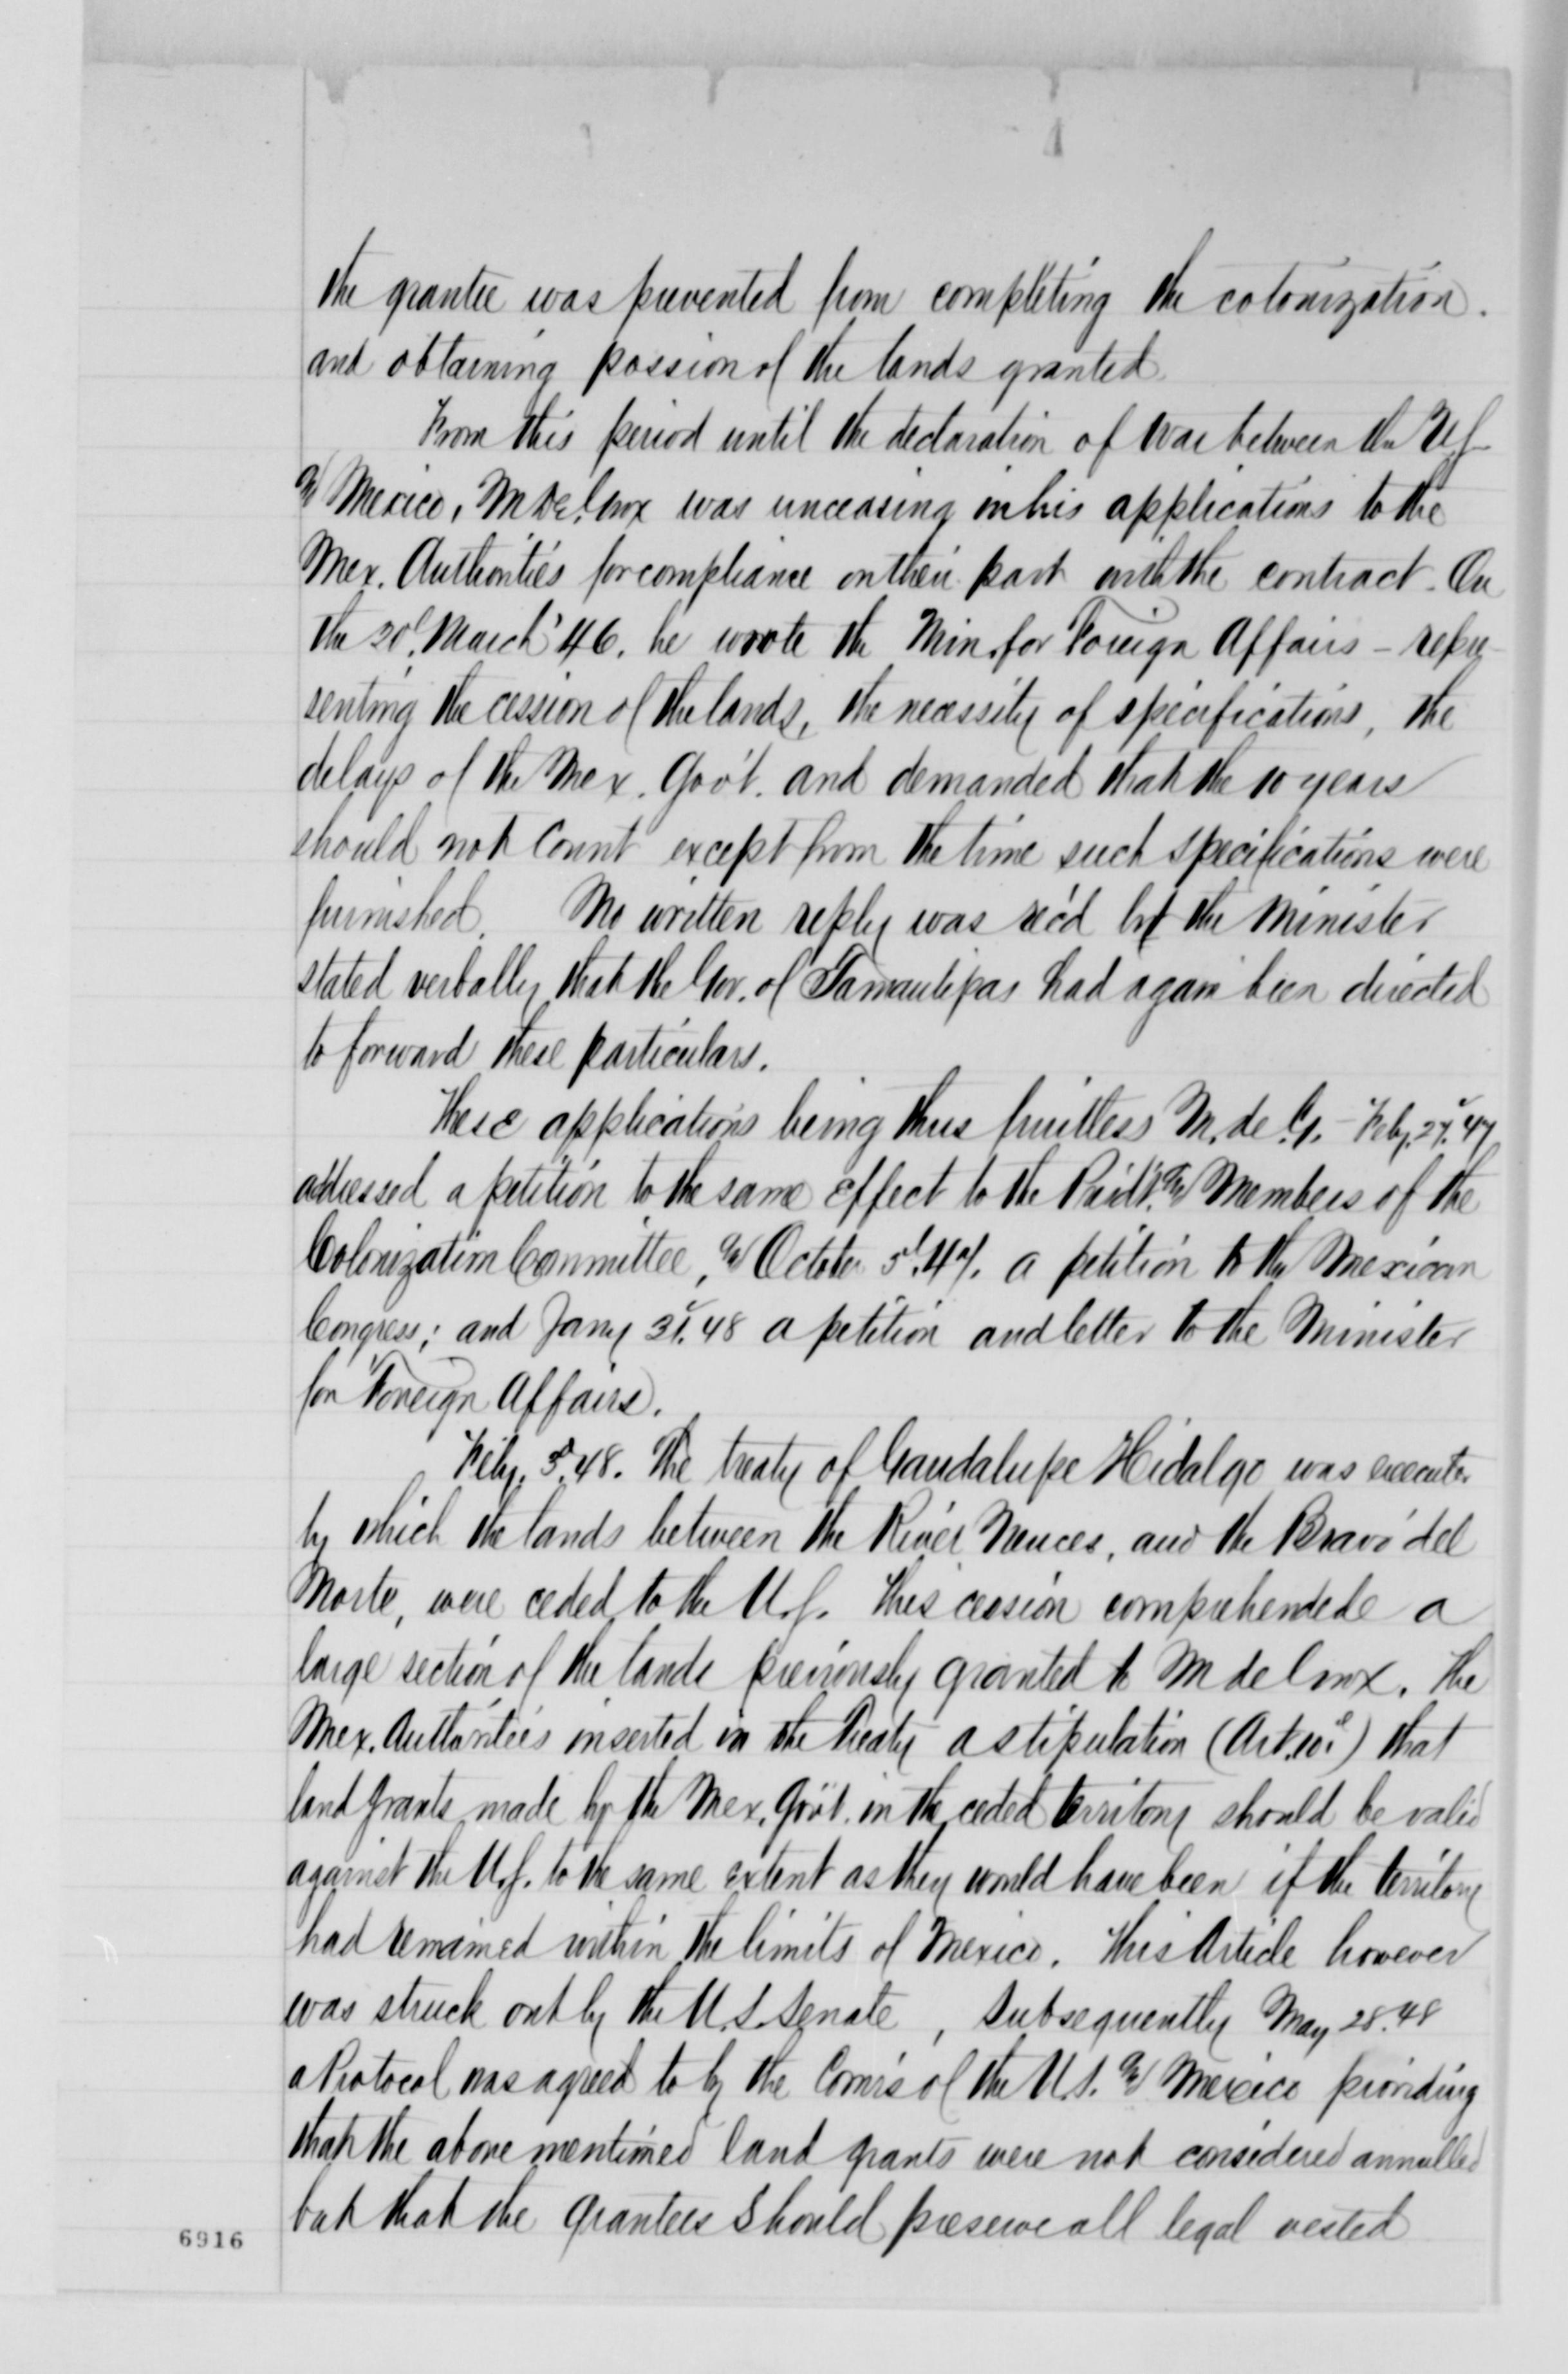 the grantee was prevented from completing the colonization.
and obtaining possion of the lands granted.
From this period until the declaration of war between the U.S.
& Mexico, M de Croix was unceasing in his applications to the
Mex. Authorities for compliance on their part with the contract. On
the 30th March '46. he wrote the Min. for Foreign Affairs - repre-
senting the cession of the lands, the necessity of specifications, the
delays of the Mex. Gov't. and demanded that the 10 years
should not count except from the time such specifications were
furnished. No written reply was rec'd but the Minister
stated verbally that the Gov. of Tamaulipas had again been directed
to forward these particulars.
These applications being thus fruitless M. de C. - Feby. 27. 47
addressed a petition to the same effect to the Presdt. & Members of the
Colonization Committee, & October 5. 47. a petition to the Mexican
Congress; and Jany 31. 48 a petition and letter to the Minister
for Foreign Affairs.
Feby. 3d. 48. The treaty of Gaudalupe Hidalgo was executed
by which the lands between the River Neuces, and the Bravo del
Norte, were ceded to the U.S. This cession comprehended a
large section of the lands previously granted to M de Croix. The
Mex. Authorities inserted in the Treaty a stipulation (Art. 10.) that
land grants made by the Mex. Gov't. in the ceded territory should be valid
against the U.S. to the same extent as they would have been if the territory
had remained within the limits of Mexico. This Article however
was struck out by the U.S. Senate, Subsequently May 28. 48
a Protocol was agreed to by the Comrs of the U.S. & Mexico providing
that the above mentioned land grants were not considered annulled
but that the grantees should preserve all legal vested
6916